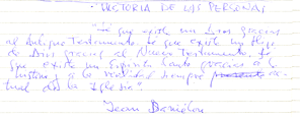 · HISTORIA DE LAS PERSONAS
"Sé que existe un Dios gracias
al Antiguo Testamento, sé que existe un Hijo
de Dios gracias al Nuevo Testamento, sé
que existe un Espíritu Santo gracias a la
historia y a la realidad siempre ac-
tual de la Iglesia"
Jean Daniélou